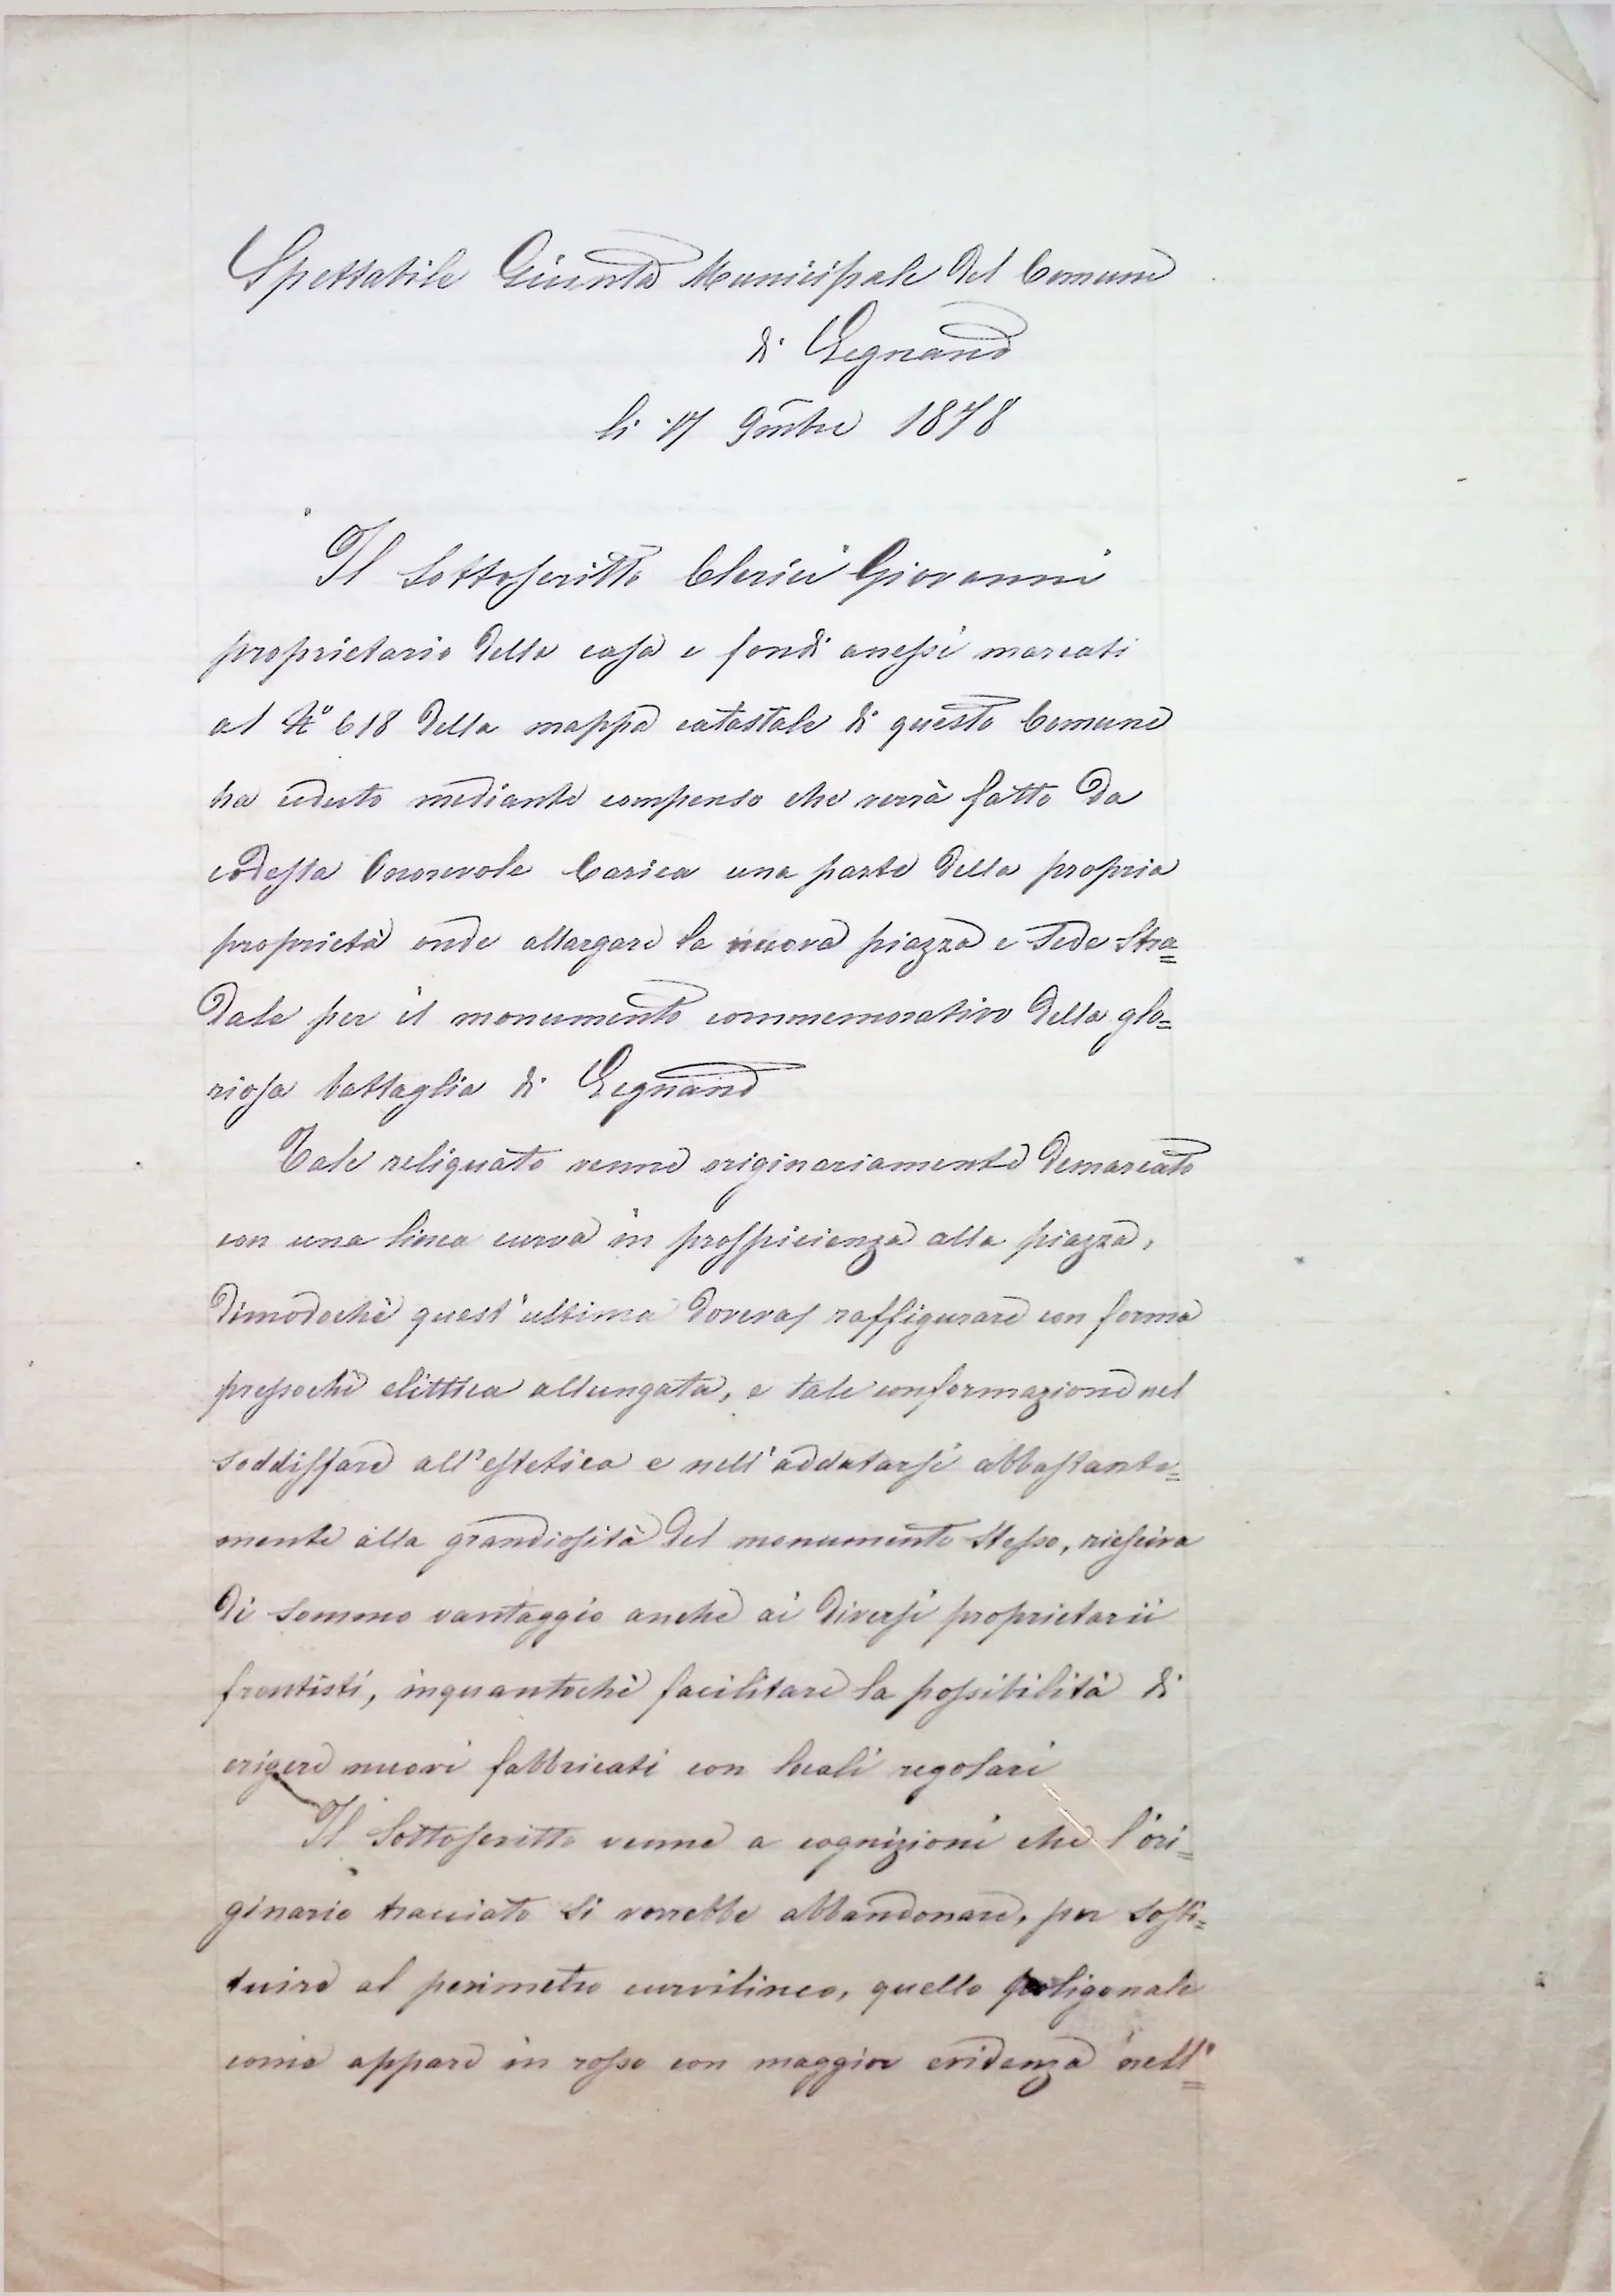 Spettabile Giunta Municipale del Comune
di Legnano
li 17 9mbre 1878
Il sottoscritto Clerici Giovanni
proprietario della casa e fondi anessi marcati
al N.° 618 della mappa catastale di questo Comune
ha ceduto mediante compenso che verrà fatto da
codesta Onorevole Carica una parte della propria
proprietà onde allargare la nuova piazza e sede stra=
dale per il monumento commemorativo della glo=
riosa battaglia di Legnano
Tale reliquato venne originariamente demarcato
con una linea curva in prospicienza alla piazza,
dimodochè quest'ultima dovevas raffigurare con forma
pressochè elittica allungata, e tale conformazione nel
soddisfare all'estetica e nell'addatarsi abbastante=
mente alla grandiosità del monumento stesso, riesciva
di sommo vantaggio anche ai diversi proprietarii
frontisti, inquantochè facilitare la possibilità di
erigere nuovi fabbricati con locali regolari
Il sottoscritto venne a cognizioni che l'ori=
ginario tracciato si vorrebbe abbandonare, per sosti=
tuire al perimetro curvilineo, quello poligonale
come appare in rosso con maggior evidenza nell'